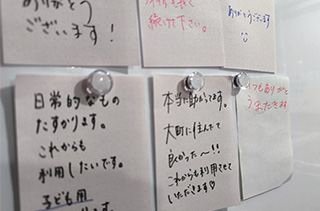 ありがとう
ございます!
続けて下さい。
ありがとうございます
日常的なもの
たすかります。
これからも
利用したいです。
子ども用
本当に助かってます。
大町に住んでて
良かった〜!!
これからも利用させて
いただきます♡
いつもありがと
う